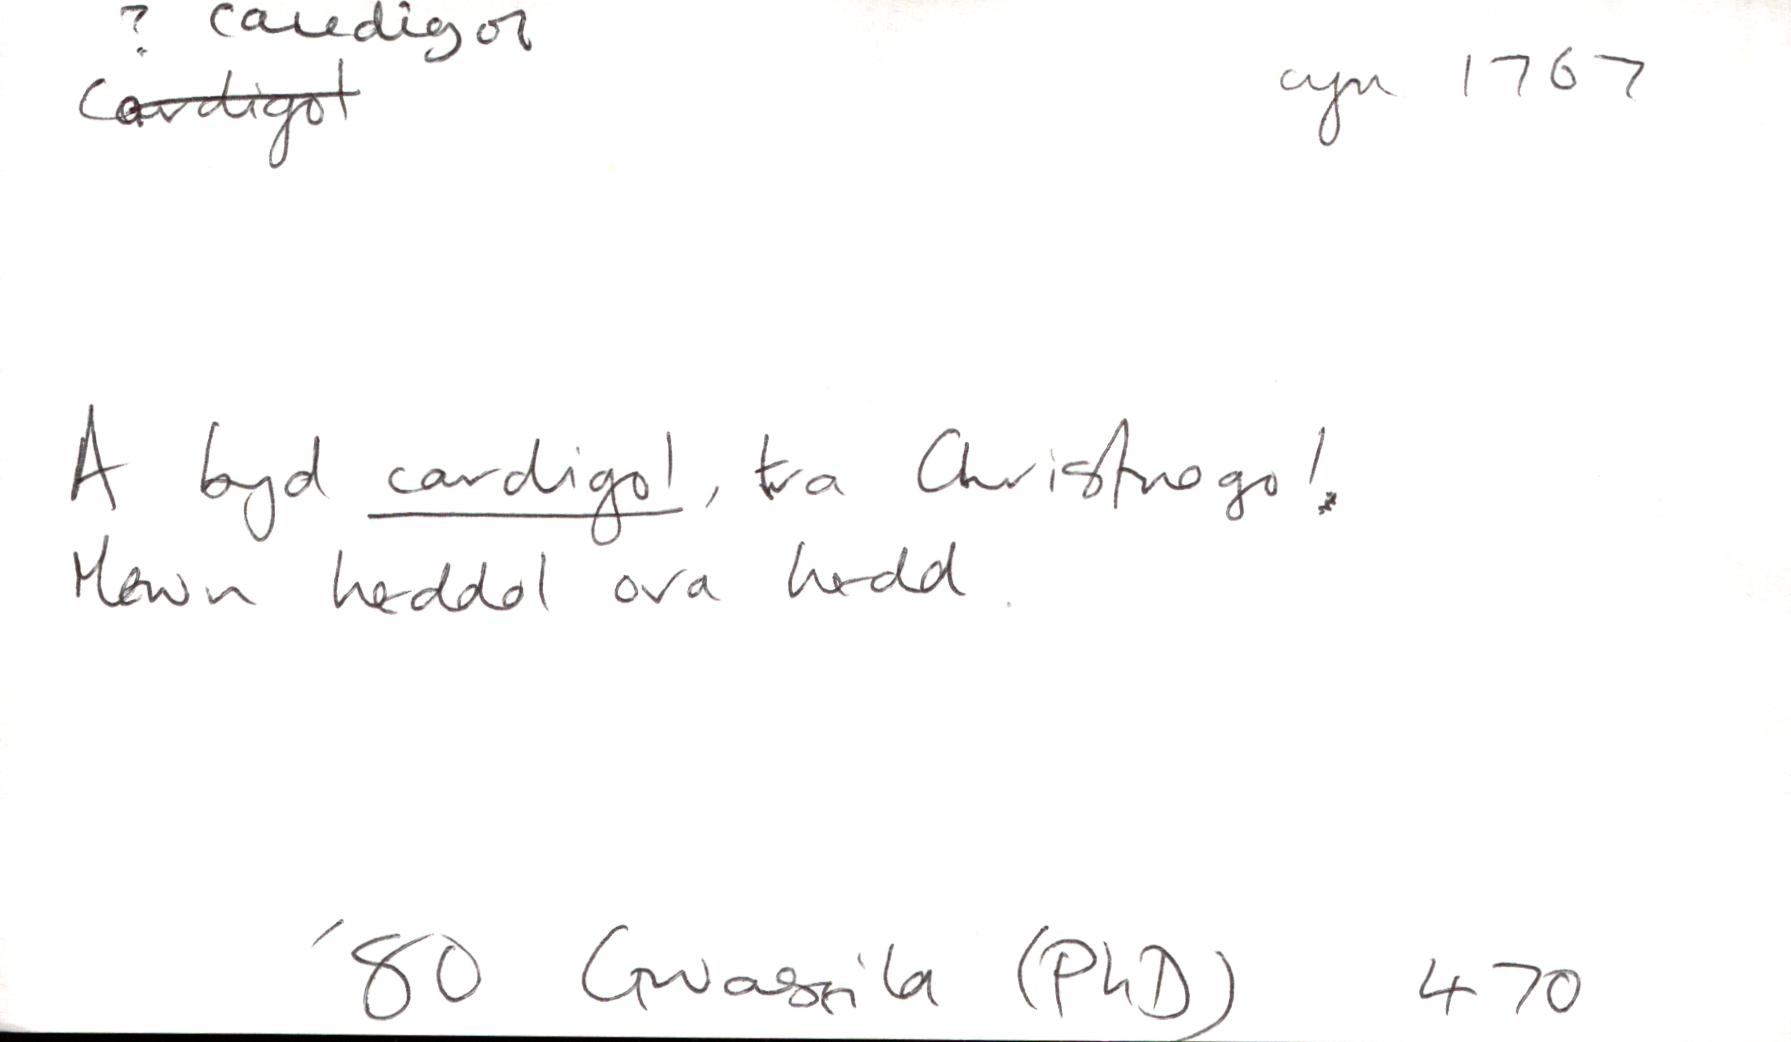 ? caredigol
cardigol
cyn 1767
A byd cardigol, tra Christnogol.
Mewn heddol ora hedd.
'80 Gwassila (PhD) 470